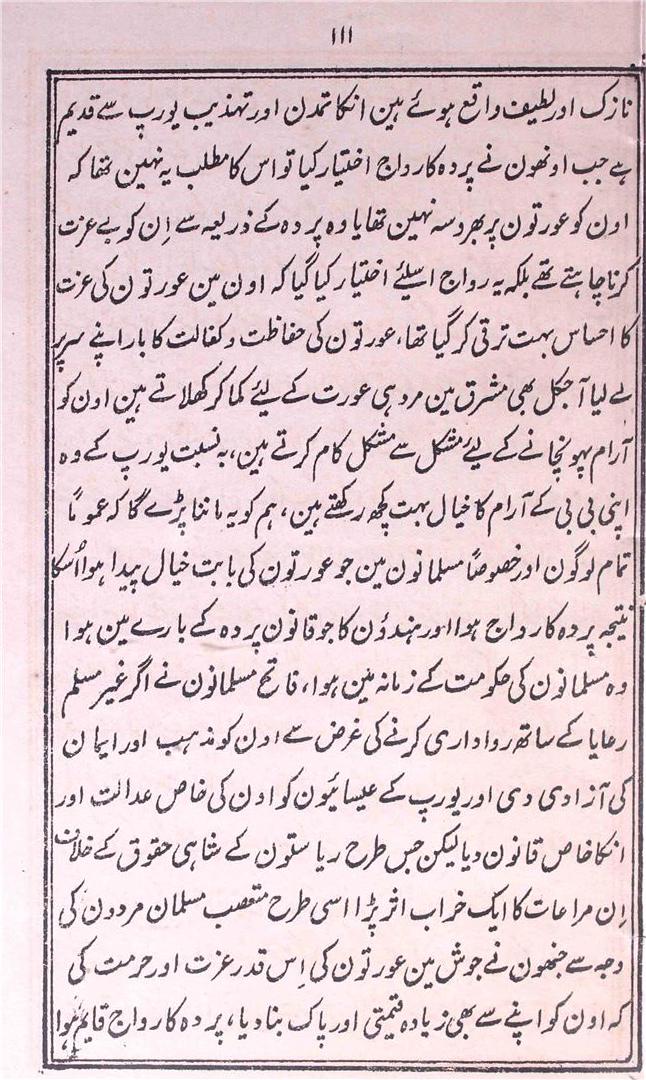 ۱۱۱
نازک اور لطیف واقع ہوئے ہین انکا تمدن اور تہذیب یورپ سے قدیم
ہے جب اونھون نے پردہ کا رواج اختیار کیا تو اس کا مطلب یہ نہین تھا کہ
اون کو عورتون پر بھروسہ نہین تھا یا وہ پردہ کے ذریعہ سے اِن کو بے عزت
کرنا چاہتے تھے بلکہ یہ رواج اسلئے اختیار کیا گیا کہ اون مین عورتون کی عزت
کا احساس بہت ترقی کر گیا تھا، عورتون کی حفاظت و کفالت کا بار اپنے سر پر
لے لیا آجکل بھی مشرق مین مرد ہی عورت کے لیئے کما کر کھلاتے ہین اون کو
آرام پہونچانے کے لیئے مشکل سے مشکل کام کرتے ہین، بہ نسبت یورپ کے وہ
اپنی بی بی کے آرام کا خیال بہت کچھ رکھتے ہین، ہم کو یہ ماننا پڑے گا کہ عموماً
تمام لوگون اور خصوصاً مسلمانون مین جو عورتون کی بابت خیال پیدا ہوا اُسکا
نتیجہ پردہ کا رواج ہوا اور ہندؤن کا جو قانون پردہ کے بارے مین ہوا
وہ مسلمانون کی حکومت کے زمانہ مین ہوا، فاتح مسلمانون نے اگر غیر مسلم
رعایا کے ساتھ رواداری کرنے کی غرض سے اون کو مذہب اور ایمان
کی آزادی دی اور یورپ کے عیسائیون کو اون کی خاص عدالت اور
انکا خاص قانون دیا لیکن جس طرح ریاستون کے شاہی حقوق کے خلاف
اِن مراعات کا ایک خراب اثر پڑا اسی طرح متعصب مسلمان مردون کی
وجہ سے جنھون نے جوش مین عورتون کی اِس قدر عزت اور حرمت کی
کہ اون کو اپنے سے بھی زیادہ قیمتی اور پاک بنا دیا، پردہ کا رواج قایم ہوا